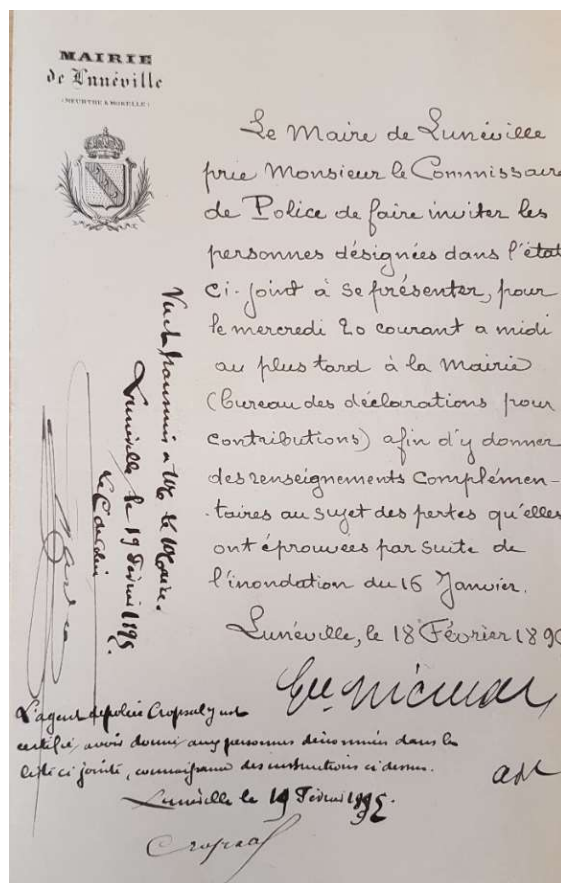 MAIRIE
de Lunéville
(MEURTHE & MOSELLE)
Le Maire de Lunéville
prie Monsieur le Commissaire
de Police de faire inviter les
personnes désignées dans l'état
ci-joint à se présenter, pour
le mercredi 20 courant a midi
au plus tard à la Mairie
(bureau des déclarations pour
contributions) afin d'y donner
des renseignements complémen-
-taires au sujet des pertes qu'elles
ont éprouvées par suite de
l'inondation du 16 Janvier.
Lunéville, le 18 Février 189
Vu et transmis a Mr le Maire.
Lunéville le 19 Février 1895.
L'agent de police Cropsal
certifie, avoir donné, aux personnes dénommées dans la
liste ci jointe, connaissance des instructions ci dessus.
Lunéville le 19 Février 1895.
Cropsal